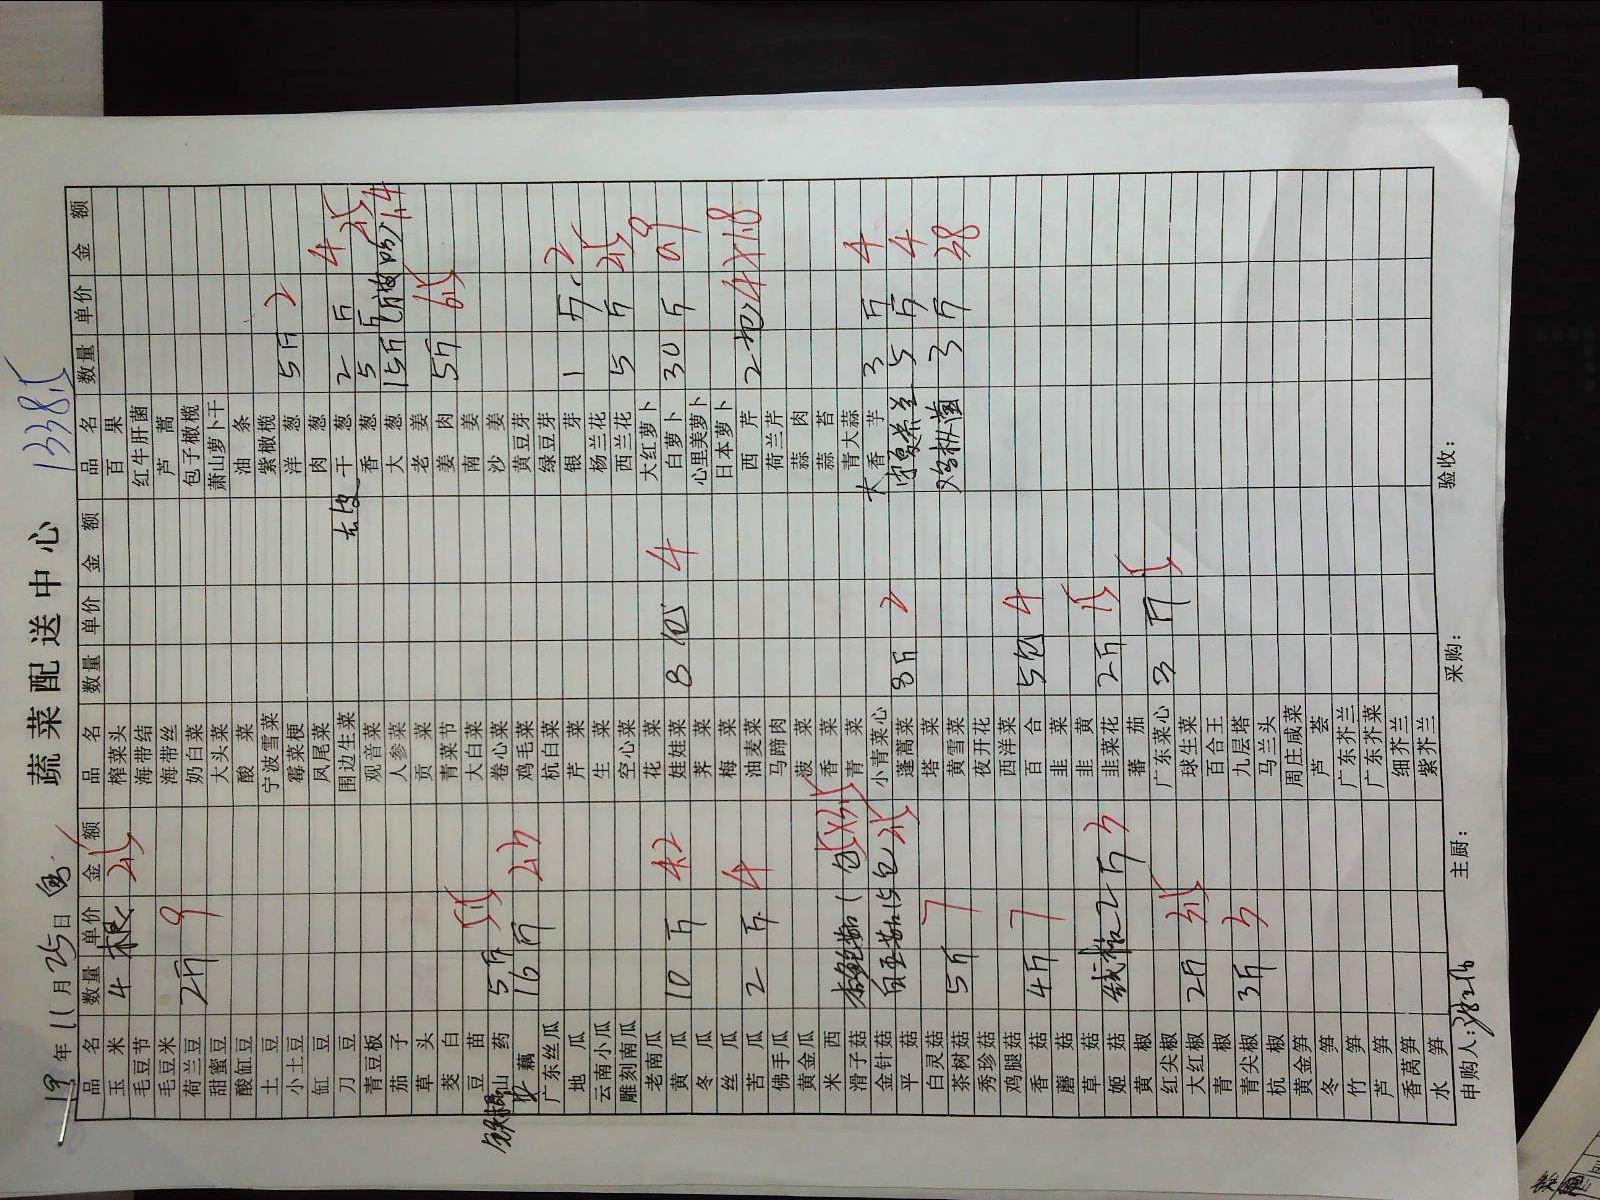 蔬菜配送中心 13385
19年11月25日
品名 数量 单价 金额 品名 数量 单价 金额 品名 数量 单价 金额
玉米 4 根 25 榨菜头 百果
毛豆节 海带结 红牛肝菌
毛豆米 海带丝 芦蒿
荷兰豆 2斤 9 奶白菜 包子橄榄
甜蜜豆 大头菜 萧山萝卜干
酸缸豆 酸菜 油条
土豆 宁波雪菜 紫橄榄
小土豆 霉菜梗 洋葱 5斤 2
缸豆 凤尾菜 肉葱
刀豆 围边生菜 去皮 干葱 2 斤 4
青豆板 观音菜 香葱 5 斤 25
茄子 人参菜 大葱 15斤 14
草头 贡菜 老姜
茭白 青菜节 姜肉 5斤 65
豆苗 大白菜 南姜
铁棍山药 5斤 55 卷心菜 沙姜
藕 16斤 23 鸡毛菜 黄豆芽
广东丝瓜 杭白菜 绿豆芽
地瓜 芹菜 银芽 1 斤 2
云南小瓜 生菜 杨兰花
雕刻南瓜 空心菜 西兰花 5 斤 25
老南瓜 花菜 大红萝卜
黄瓜 10 斤 42 娃娃菜 8 包 4 白萝卜 30 斤 09
冬瓜 荠菜 心里美萝卜
丝瓜 梅菜 日本萝卜
苦瓜 2 斤 4 油麦菜 西芹 2包 4X18
佛手瓜 马蹄肉 荷兰芹
黄金瓜 菠菜 蒜肉
米西 香菜 蒜苔
滑子菇 1包 5X35 青菜 青大蒜
金针菇 白玉菇15包 25 小青菜心 大香芋 3 斤 4
平菇 蓬蒿菜 8斤 2 内蒙茶兰 5 斤 4
白灵菇 塔菜
茶树菇 5斤 7 黄雪菜 鸡枞菌 3 斤 38
秀珍菇 夜开花
鸡腿菇 西洋菜
香菇 4斤 7 百合 5包 4
蘑菇 韭菜
草菇 韭黄
姬菇 2斤 3 韭菜花 2斤 15
黄椒 蕃茄
红尖椒 广东菜心 3 斤 5
大红椒 2斤 35 球生菜
青椒 百合王
青尖椒 3斤 3 九层塔
杭椒 马兰头
黄金笋 周庄咸菜
冬笋 芦荟
竹笋 广东芥兰
芦笋 广东芥菜
香莴笋 细芥兰
水笋 紫芥兰
申购人: 主厨: 采购: 验收: